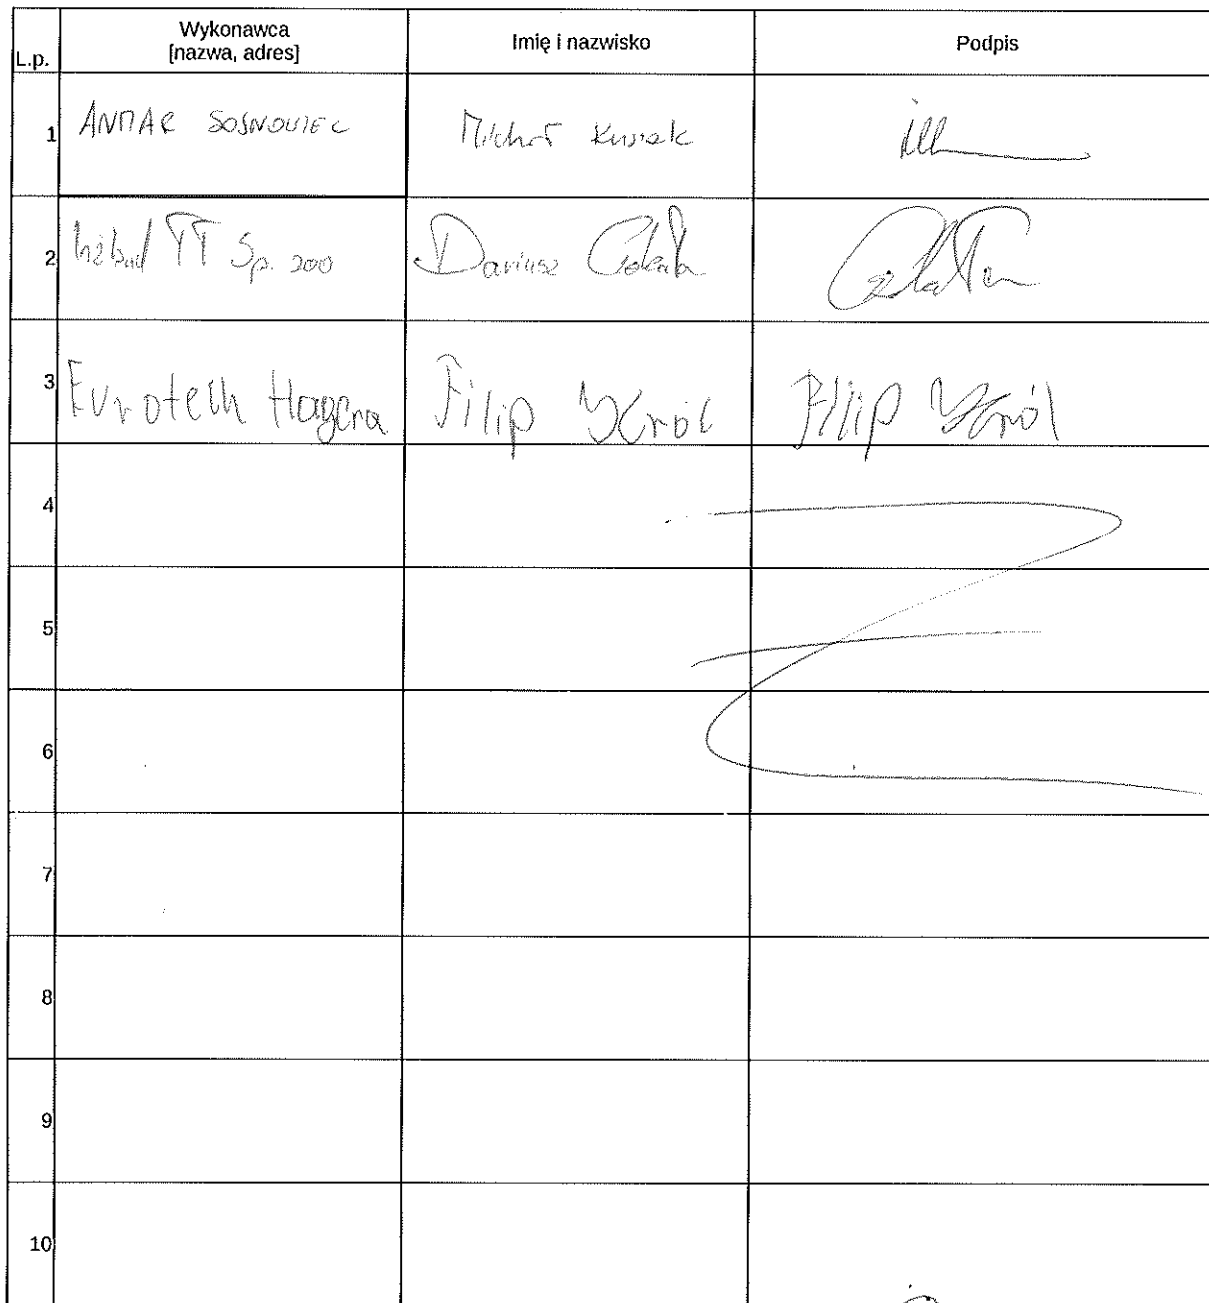 L.p.
Wykonawca
[nazwa, adres]
Imię i nazwisko
Podpis
1
ANMAR SOSNOWIEC
Michał
2
TT Sp. zoo
Dariusz
3
Eurotech Hagera
Filip Król
Filip Król
4
5
6
7
8
9
10